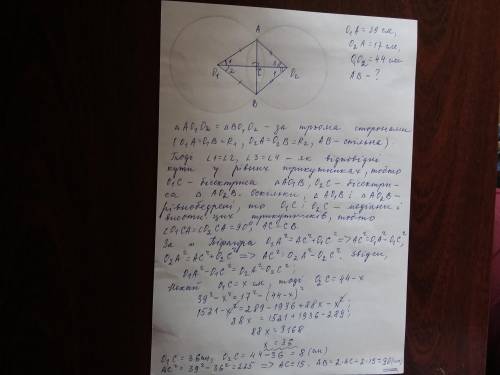 A
O₁ C O₂
B
1 2 3 4
O₁A = 39 см,
O₂A = 17 см,
O₁O₂ = 44 см
AB - ?
△AO₁O₂ = △BO₁O₂ - за трьома сторонами
(O₁A=O₁B=R₁, O₂A=O₂B=R₂, AB - спільна)
Тоді ∠1=∠2, ∠3=∠4 - як відповідні
кути у рівних трикутниках, тобто
O₁C - бісектриса △AO₁B, O₂C - бісектри-
са △AO₂B. Оскільки, △AO₁B і △AO₂B -
рівнобедрені, то O₁C і O₂C - медіани і
висоти цих трикутників, тобто
∠O₁CA=∠O₂CA=90°, AC=CB.
За т. Піфагора O₁A²=AC²+O₁C² => AC²=O₁A²-O₁C²,
O₂A²=AC²+O₂C² => AC²=O₂A²-O₂C². Звідси,
O₁A²-O₁C²=O₂A²-O₂C².
Нехай O₁C = x см, тоді O₂C = 44-x
39²-x²=17²-(44-x)²
1521-x²=289-1936+88x-x²;
88x=1521+1936-289;
88x=3168
x=36
O₁C=36 см, O₂C=44-36=8 (см)
AC²=39²-36²=225 => AC=15. AB=2·AC=2·15=30(см)